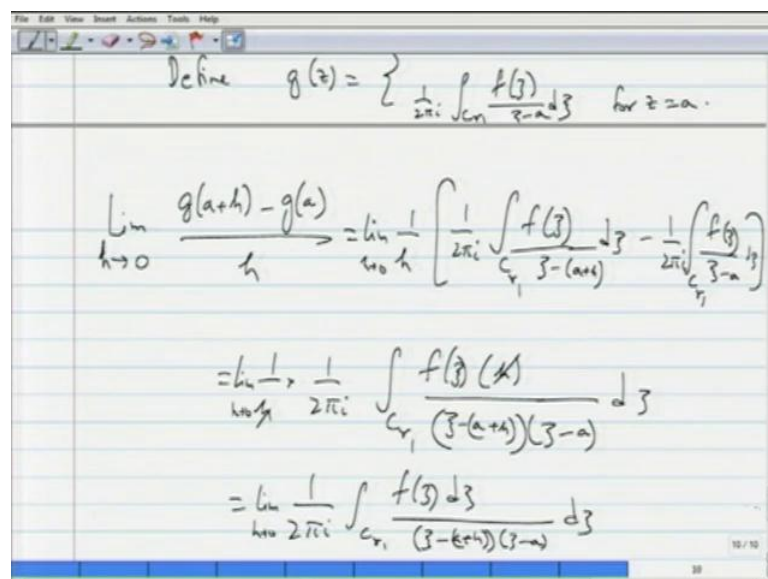 File Edit View Insert Actions Tools Help
Define g(z) = { 1/2πi ∫_{C_{r1}} f(ʒ)/(ʒ-a) dʒ for z = a.
Lim_{h→0} (g(a+h) - g(a))/h = lim_{h→0} 1/h [ 1/2πi ∫_{C_{r1}} f(ʒ)/(ʒ-(a+h)) dʒ - 1/2πi ∫_{C_{r1}} f(ʒ)/(ʒ-a) dʒ ]
= lim_{h→0} 1/h × 1/2πi ∫_{C_{r1}} f(ʒ)(h)/((ʒ-(a+h))(ʒ-a)) dʒ
= lim_{h→0} 1/2πi ∫_{C_{r1}} f(ʒ) dʒ/((ʒ-(a+h))(ʒ-a)) dʒ
10/10
10